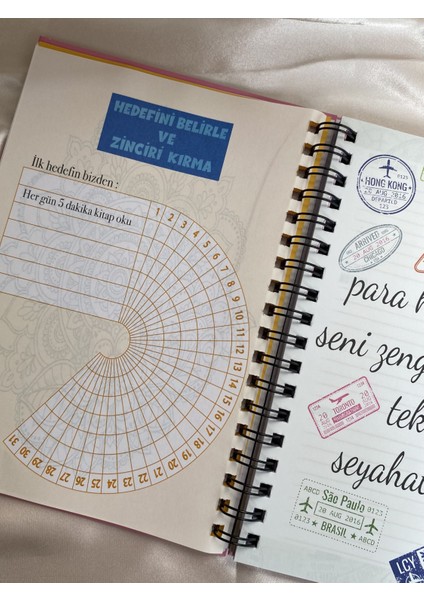 HEDEFİNİ BELİRLE
VE
ZİNCİRİ KIRMA
İlk hedefin bizden :
Her gün 5 dakika kitap oku
1 2 3 4 5 6 7 8 9 10 11 12 13 14 15 16 17 18 19 20 21 22 23 24 25 26 27 28 29 30 31
0123
HONG KONG
5 AUG 2016
DEPARTED
123
ARRIVED
20 AUG 2016
CHICAGO
para
seni zeng
TORONTO
20
AUG
20
AUG
tek
seyahat
ABCD São Paulo 0123
20 AUG 2016
0123 BRASIL ABCD
LCY